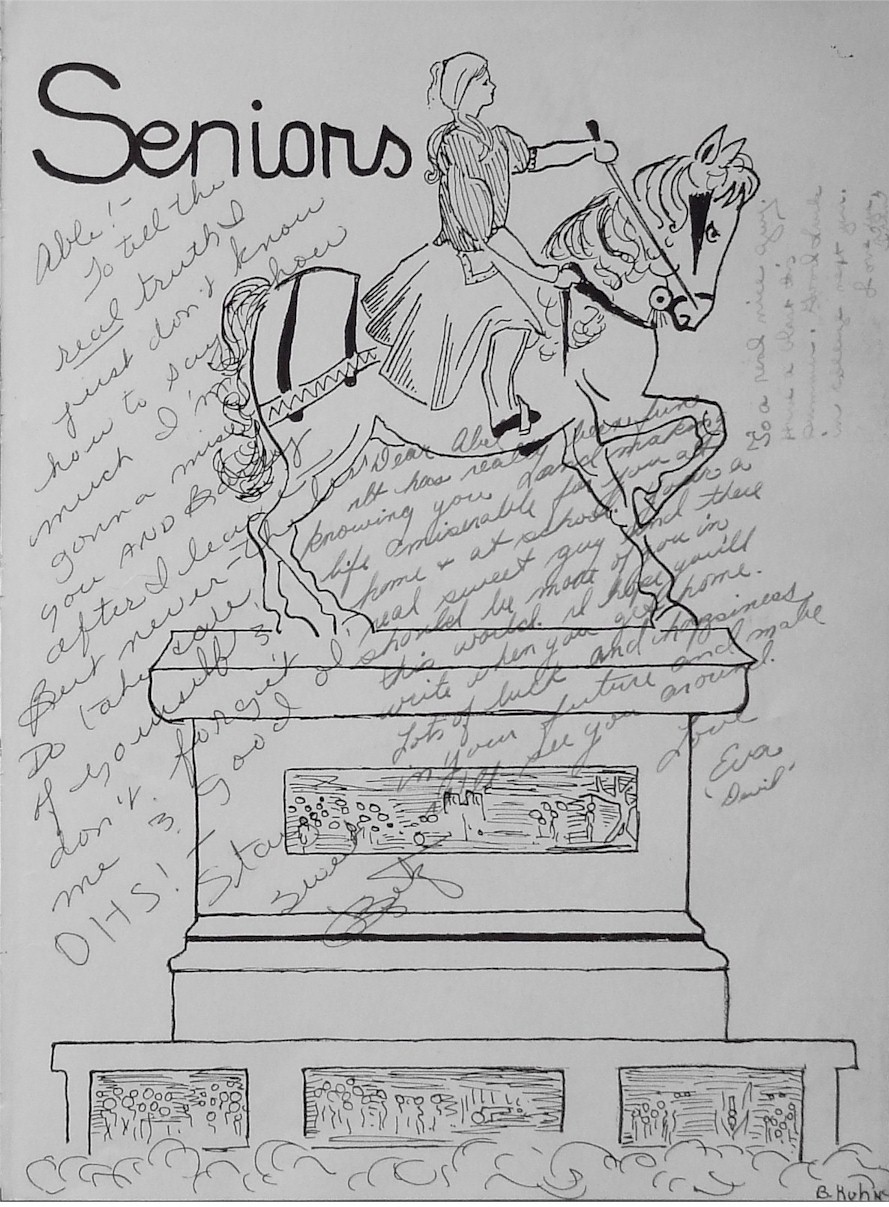 Seniors
Able! -
To tell the
real truth I
just don't know
how to say how
much I'm
gonna miss
you AND Barry
after I leave
But never-the less
Do take care
of yourself &
don't forget
me & good ol'
OHS! - Stay
sweet
Betty
Dear Abe
It has really been fun
knowing you and making
life miserable for you at
home & at school. You're a
real sweet guy and there
should be more of you in
this world. I hope you'll
write when you get home.
Lots of luck and happiness
in your future and make
it see you around.
Love
Eva
"Devil"
To a real nice guy.
Have a blast this
summer. Good luck
in college next yr.
Love ya,
B. Kuhn